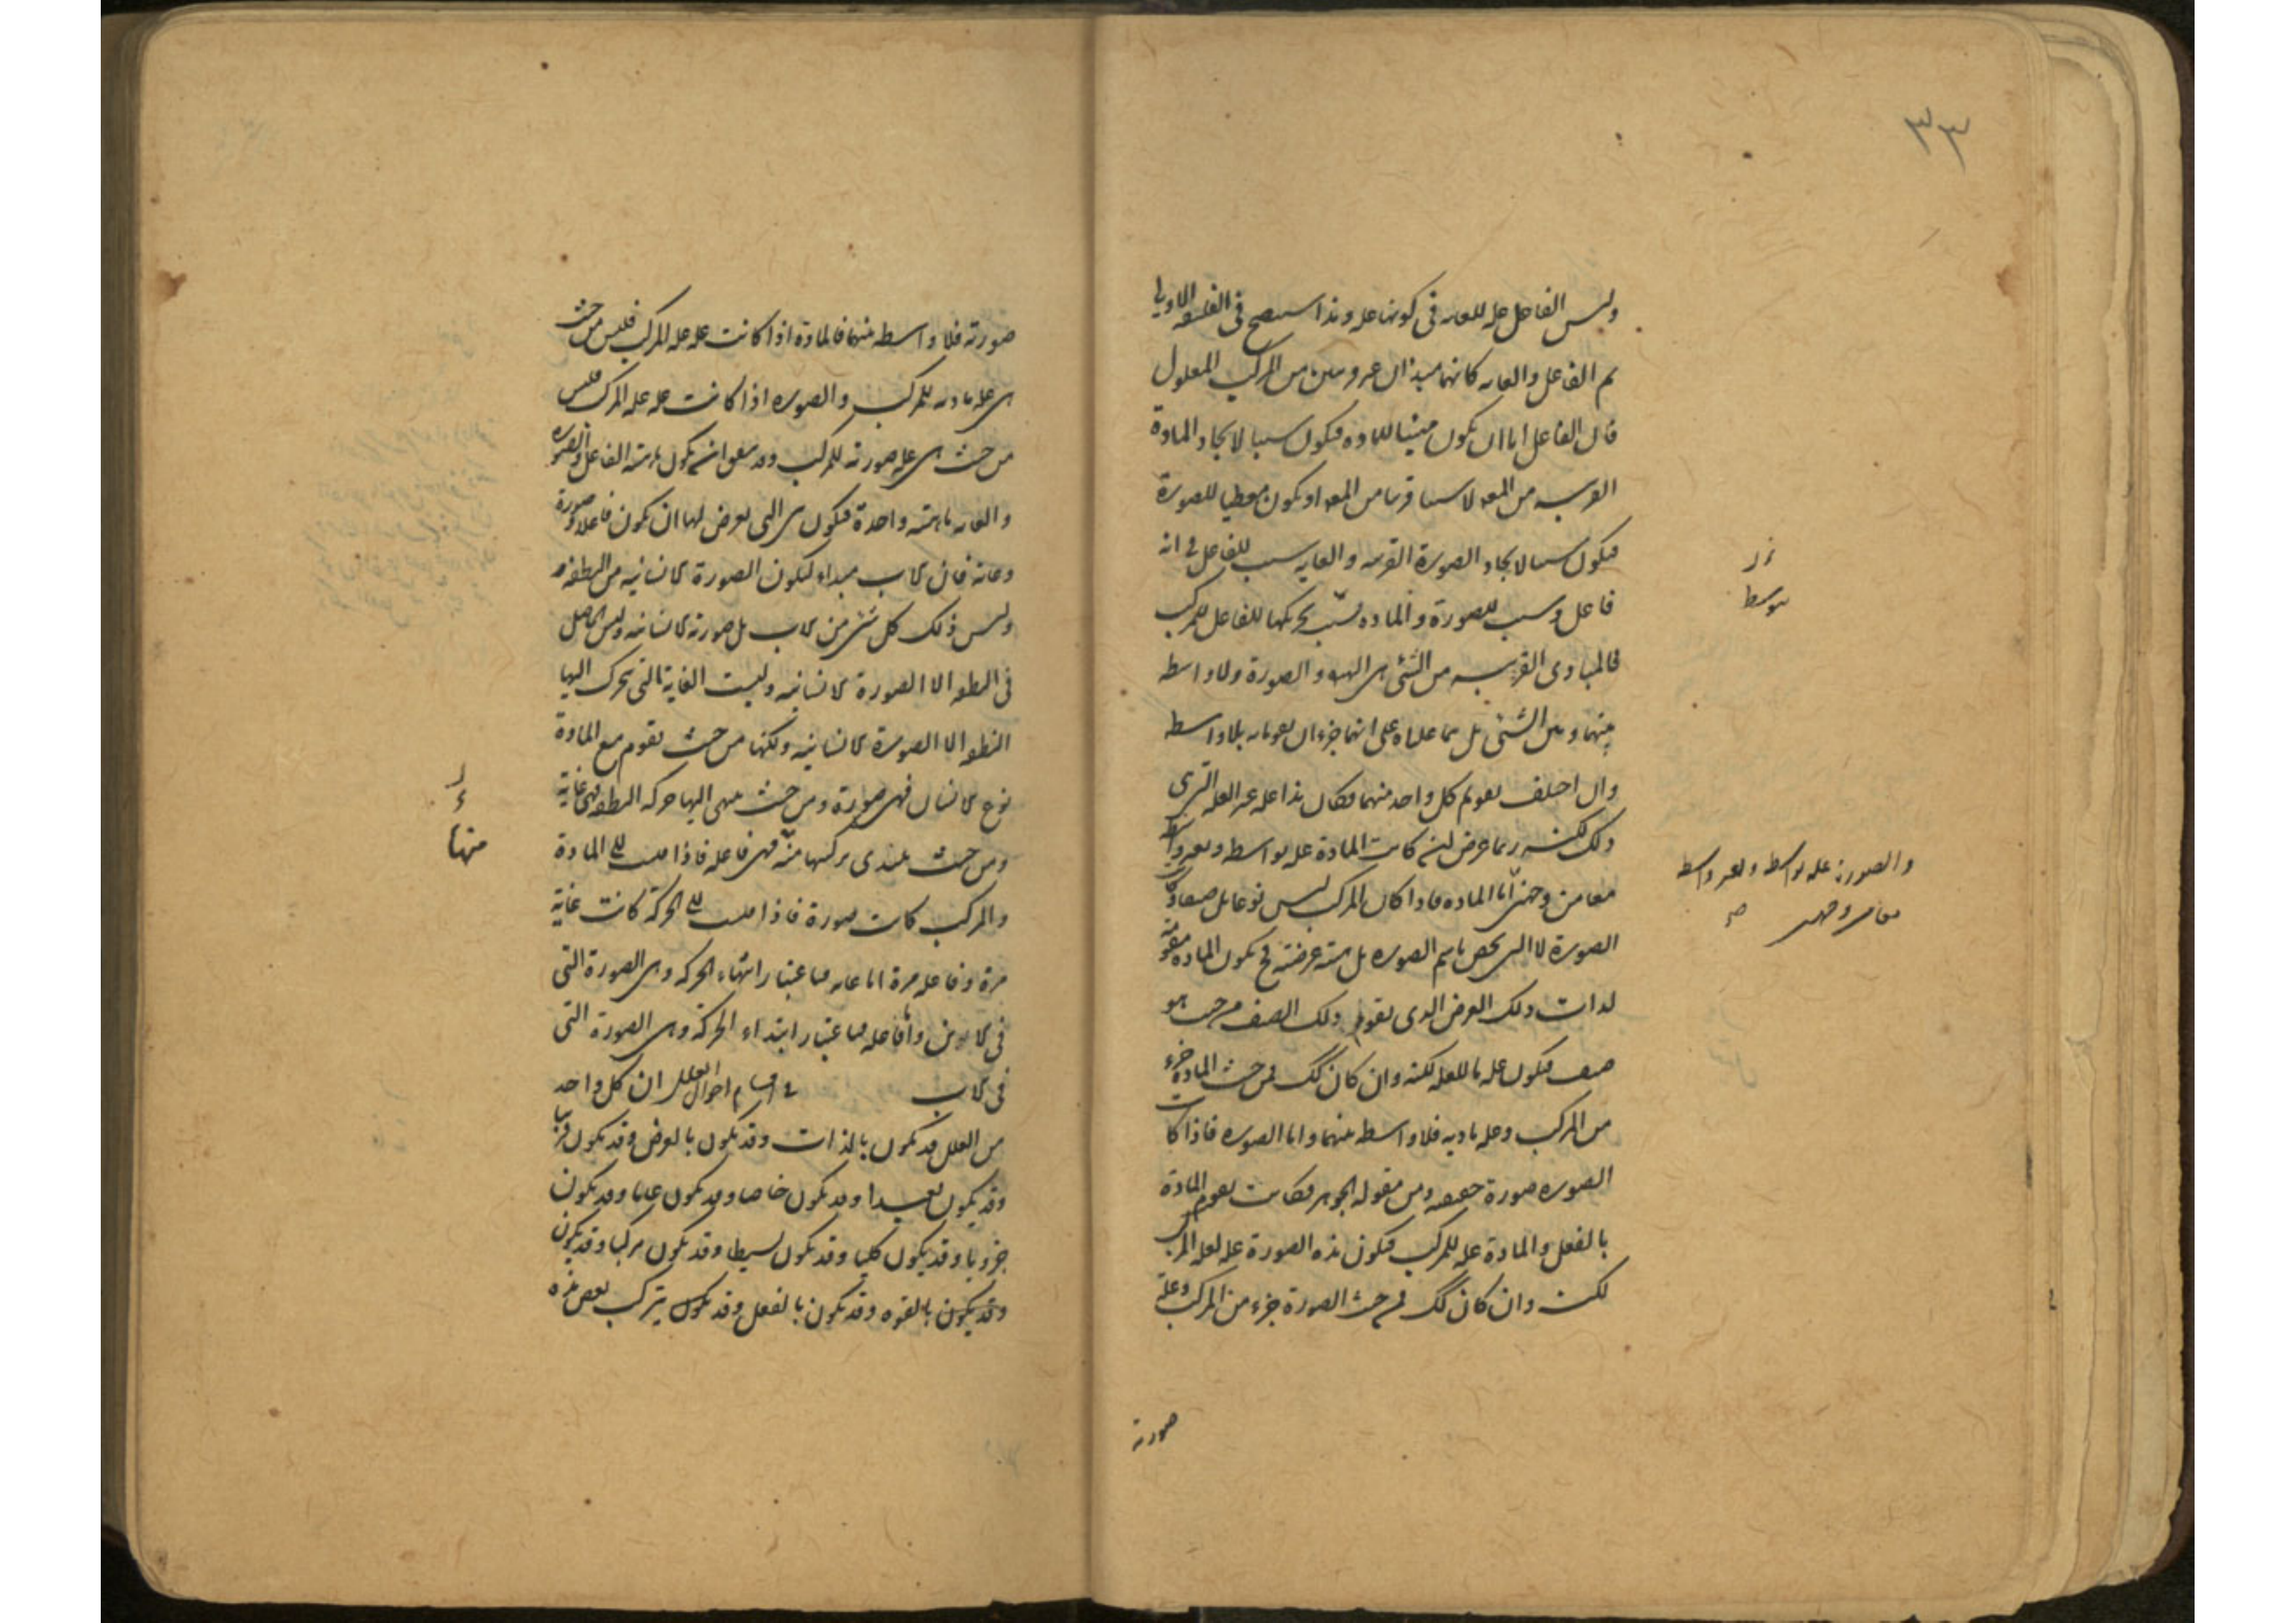 ٣٣
وليس الفاعل علة للغاية في كونها علة وهذا سيتضح في الفلسفة الاولى
ثم الفاعل والغاية كانهما مبدءان غير قريبين من المركب المعلول
فان الفاعل اما ان يكون مهيئا للمادة فيكون سببا لايجاد المادة
القريبة من المعلول لا سببا قريبا من المعلول او يكون معطيا للصورة
فيكون سببا لايجاد الصورة القريبة والغاية سبب للفاعل في انه
فاعل وسبب للصورة والمادة بتحريكها للفاعل للمركب
فالمبادى القريبة من الشئ هى الهيولى والصورة ولا واسطة
بينهما وبين الشئ بل هما علتاه على انهما جزءان يقومانه بلا واسطة
وان اختلف تقويم كل واحد منهما فكان هذا علة غير العلة التى هى
ذلك لكنه ربما عرض ان كانت المادة علة بواسطة وبغير واسطة
معا من وجهين اما المادة فاذا كان المركب ليس نوعا بل صنفا وكانت
الصورة لا التى تخص باسم الصورة بل هيئة عرضية فح تكون المادة مقومة
لذات ذلك العرض الذى يقوم ذلك الصنف من حيث هو
صنف فيكون علة ما للعلة لكنه وان كان كك فمن حيث المادة جزء
من المركب وعلة مادية فلا واسطة بينهما واما الصورة فاذا كانت
الصورة صورة حقيقية ومن مقولة الجوهر فكانت تقوم المادة
بالفعل والمادة علة للمركب فتكون هذه الصورة علة لعلة المركب
لكنه وان كان كك فمن حيث الصورة جزء من المركب وعلة
صورية
بتوسط
والصورة علة بواسطة وبغير واسطة
معا من وجهين صح
صورية فلا واسطة بينهما فالمادة اذا كانت علة علة المركب فليس من حيث
هى علة مادية للمركب والصورة اذا كانت علة علة المركب فليس
من حيث هى علة صورية للمركب وقد يتفق ان تكون ماهية الفاعل والصورة
والغاية ماهية واحدة فتكون هى التى يعرض لها ان تكون فاعلا وصورة
وغاية فان فى الاب مبداء لتكون الصورة الانسانية من النطفة
وليس ذلك كل شئ من الاب بل صورته الانسانية وليس الحاصل
فى النطفة الا الصورة الانسانية وليست الغاية التى تتحرك اليها
النطفة الا الصورة الانسانية ولكنها من حيث تقوم مع المادة
نوع الانسان فهى صورة ومن حيث تنتهى اليها حركة النطفة فهى غاية
ومن حيث يبتدى تركيبها منه فهى فاعلة فاذا قيست الى المادة
والمركب كانت صورة فاذا قيست الى الحركة كانت غاية
مرة وفاعلة مرة اما غاية فباعتبار انتهاء الحركة وهى الصورة التى
فى الابن واما فاعلة فباعتبار ابتداء الحركة وهى الصورة التى
فى الاب فى اقسام احوال العلل ان كل واحد
من العلل قد يكون بالذات وقد يكون بالعرض وقد يكون قريبا
وقد يكون بعيدا وقد يكون خاصا وقد يكون عاما وقد يكون
جزويا وقد يكون كليا وقد يكون بسيطا وقد يكون مركبا وقد يكون
وقد يكون بالقوة وقد يكون بالفعل وقد يكون يتركب بعض هذه
منها